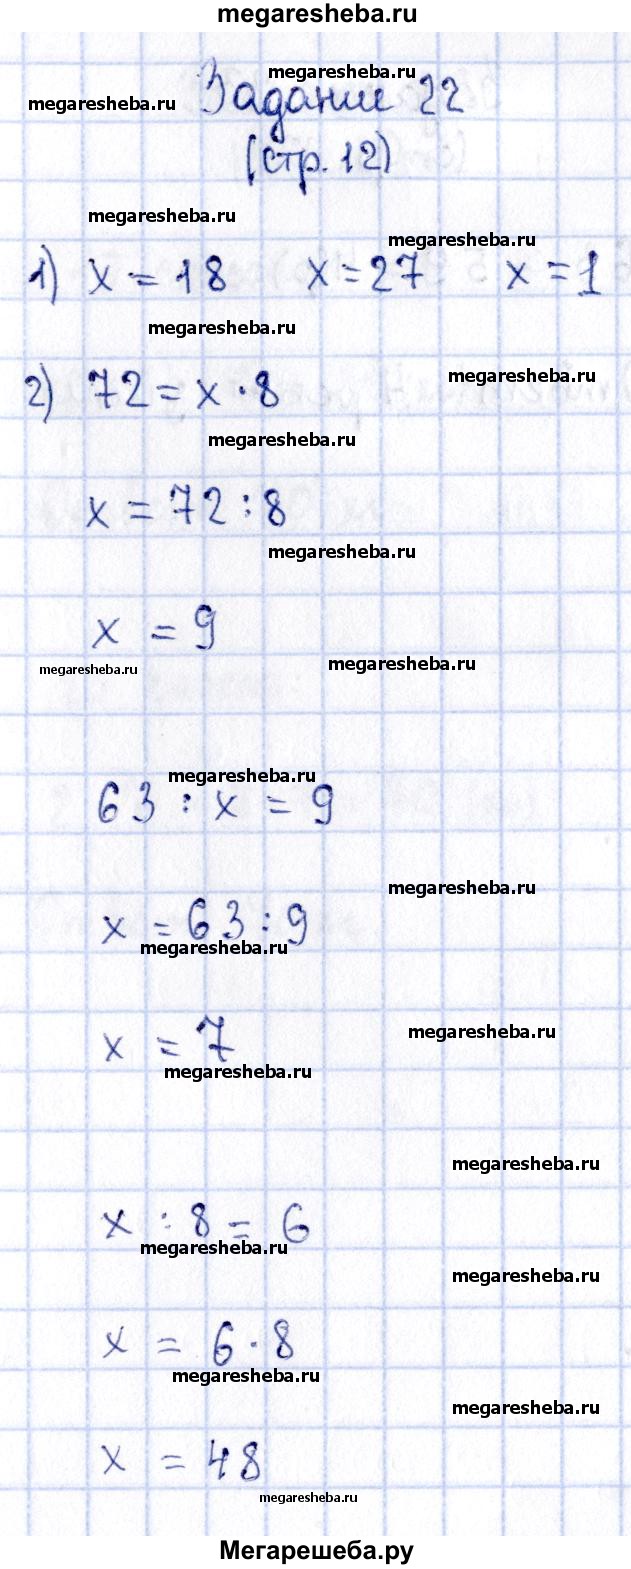 megaresheba.ru
megaresheba.ru
megaresheba.ru
Задание 22
(стр. 12)
megaresheba.ru
megaresheba.ru
1) x = 18 x = 27 x = 1
megaresheba.ru
megaresheba.ru
2) 72 = x · 8
megaresheba.ru
x = 72 : 8
megaresheba.ru
x = 9
megaresheba.ru
megaresheba.ru
megaresheba.ru
63 : x = 9
megaresheba.ru
x = 63 : 9
megaresheba.ru
megaresheba.ru
x = 7
megaresheba.ru
megaresheba.ru
x : 8 = 6
megaresheba.ru
megaresheba.ru
x = 6 · 8
megaresheba.ru
megaresheba.ru
x = 48
megaresheba.ru
Мегарешеба.ру